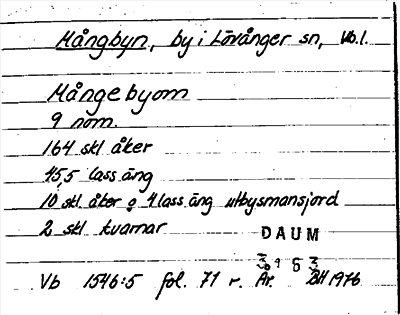 Mångbyn, by i Lövånger sn, Vb.l.
Månge byom
9 nom.
164 skl åker
45,5 lass äng
10 skl. åker o 4 lass äng utbysmansjord
2 skl kvarnar
DAUM
Vb 1546:5 fol. 71 r. År. BH 1976